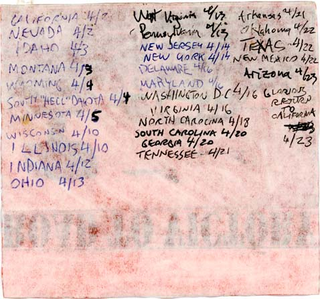 CALIFORNIA 4/2
NEVADA 4/2
IDAHO 4/3
MONTANA 4/3
WYOMING 4/4
SOUTH "HELL" DAKOTA 4/4
MINNESOTA 4/5
WISCONSIN 4/10
ILLINOIS 4/10
INDIANA 4/12
OHIO 4/13
West Virginia 4/13
Pennsylvania 4/13
NEW JERSEY 4/14
NEW YORK 4/14
DELAWARE
MARYLAND
WASHINGTON DC 4/16
VIRGINIA 4/16
NORTH CAROLINA 4/18
SOUTH CAROLINA 4/20
GEORGIA 4/20
TENNESSEE 4/21
Arkansas 4/21
Oklahoma 4/22
TEXAS 4/22
NEW MEXICO 4/22
Arizona 4/23
GLORIOUS
RETURN
TO
CALIFORNIA
4/23